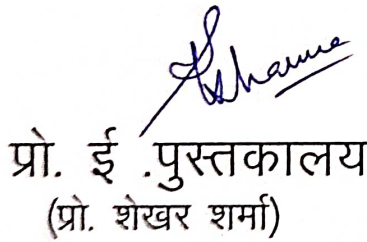 Ksharma
प्रो. ई .पुस्तकालय
(प्रो. शेखर शर्मा)